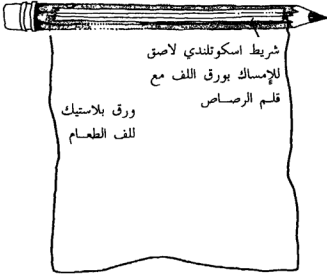 شريط اسكوتلندي لاصق
للإمساك بورق اللف مع
قلم الرصاص
ورق بلاستيك
للف الطعام